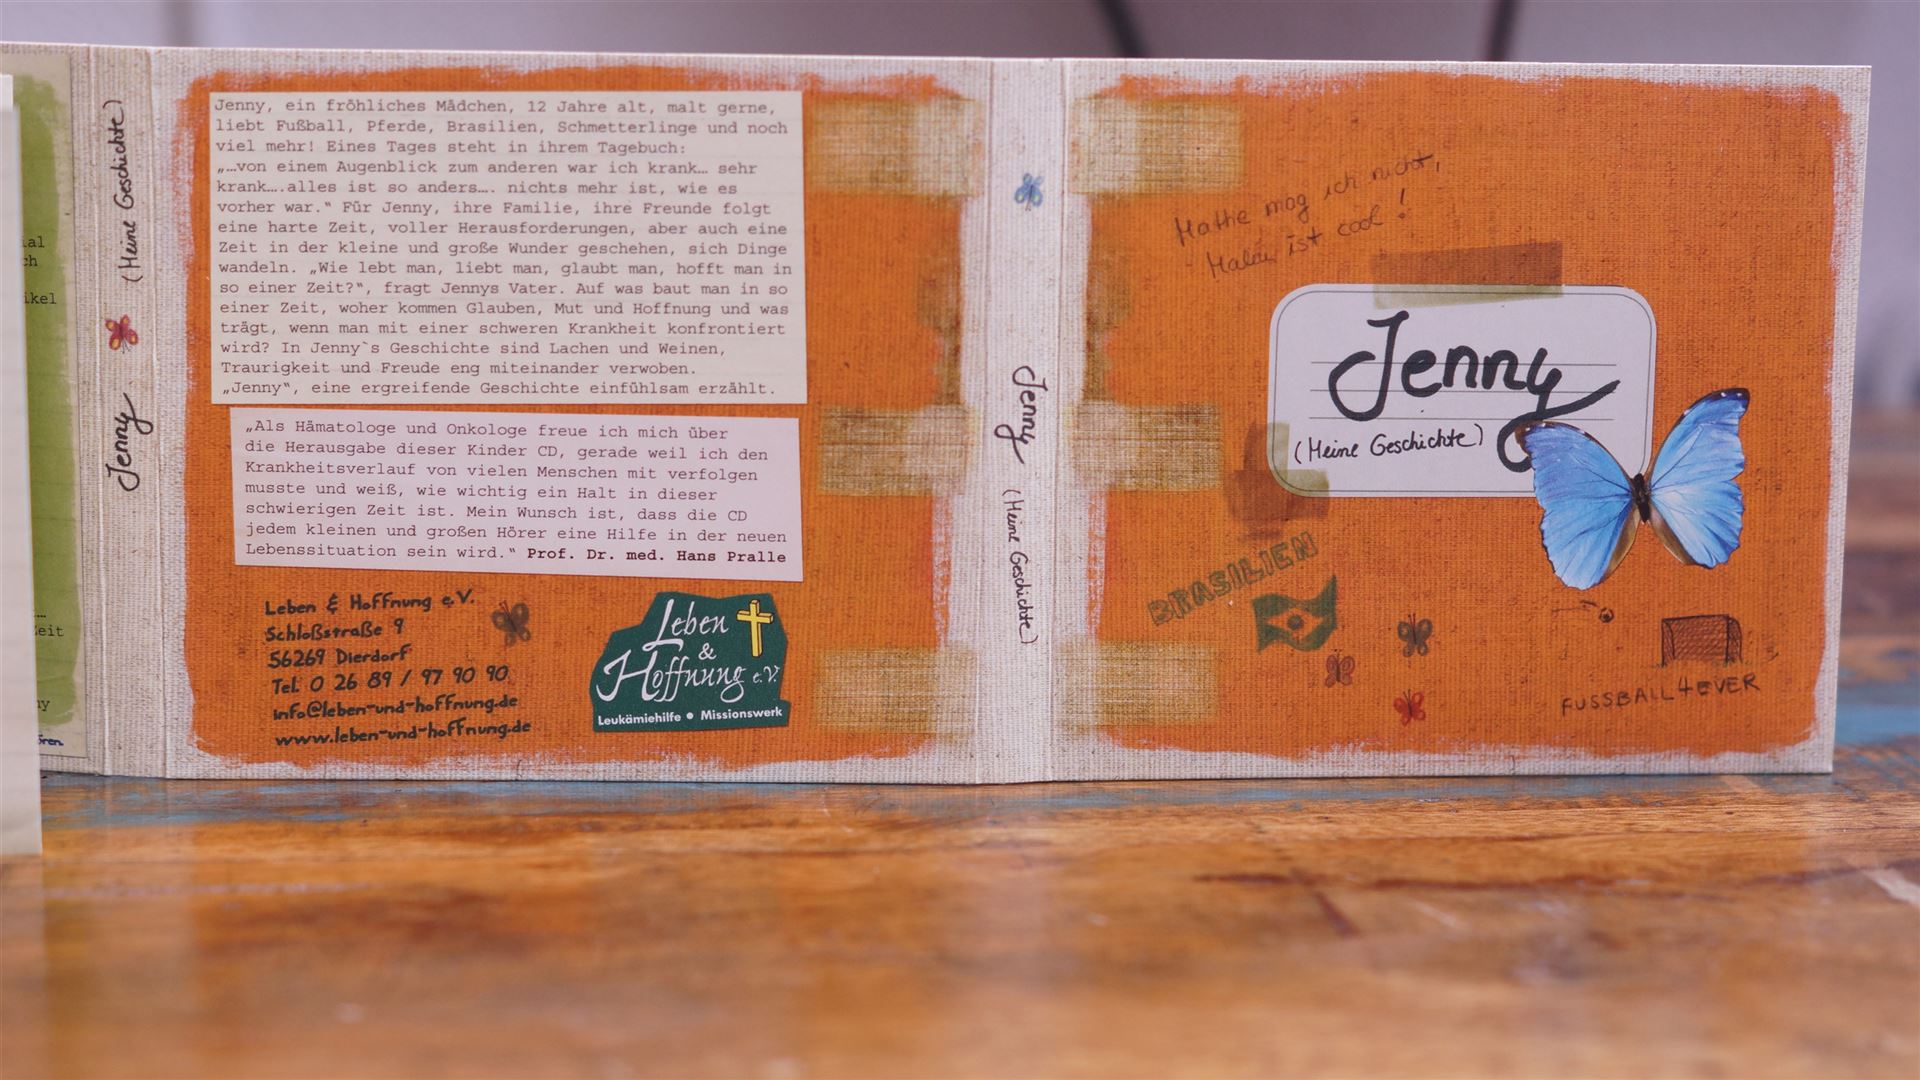 ial
ch
ikel
Zeit
ny
ören.
Jenny (Meine Geschichte)
Jenny, ein fröhliches Mädchen, 12 Jahre alt, malt gerne,
liebt Fußball, Pferde, Brasilien, Schmetterlinge und noch
viel mehr! Eines Tages steht in ihrem Tagebuch:
„…von einem Augenblick zum anderen war ich krank… sehr
krank….alles ist so anders…. nichts mehr ist, wie es
vorher war.“ Für Jenny, ihre Familie, ihre Freunde folgt
eine harte Zeit, voller Herausforderungen, aber auch eine
Zeit in der kleine und große Wunder geschehen, sich Dinge
wandeln. „Wie lebt man, liebt man, glaubt man, hofft man in
so einer Zeit?“, fragt Jennys Vater. Auf was baut man in so
einer Zeit, woher kommen Glauben, Mut und Hoffnung und was
trägt, wenn man mit einer schweren Krankheit konfrontiert
wird? In Jenny`s Geschichte sind Lachen und Weinen,
Traurigkeit und Freude eng miteinander verwoben.
„Jenny“, eine ergreifende Geschichte einfühlsam erzählt.
„Als Hämatologe und Onkologe freue ich mich über
die Herausgabe dieser Kinder CD, gerade weil ich den
Krankheitsverlauf von vielen Menschen mit verfolgen
musste und weiß, wie wichtig ein Halt in dieser
schwierigen Zeit ist. Mein Wunsch ist, dass die CD
jedem kleinen und großen Hörer eine Hilfe in der neuen
Lebenssituation sein wird.“ Prof. Dr. med. Hans Pralle
Leben & Hoffnung e.V.
Schloßstraße 9
56269 Dierdorf
Tel. 0 26 89 / 97 90 90
info@leben-und-hoffnung.de
www.leben-und-hoffnung.de
Leben
&
Hoffnung e.V.
Leukämiehilfe • Missionswerk
Jenny (Meine Geschichte)
Mathe mag ich nicht,
Malen ist cool!
Jenny
(Meine Geschichte)
BRASILIEN
FUSSBALL4EVER